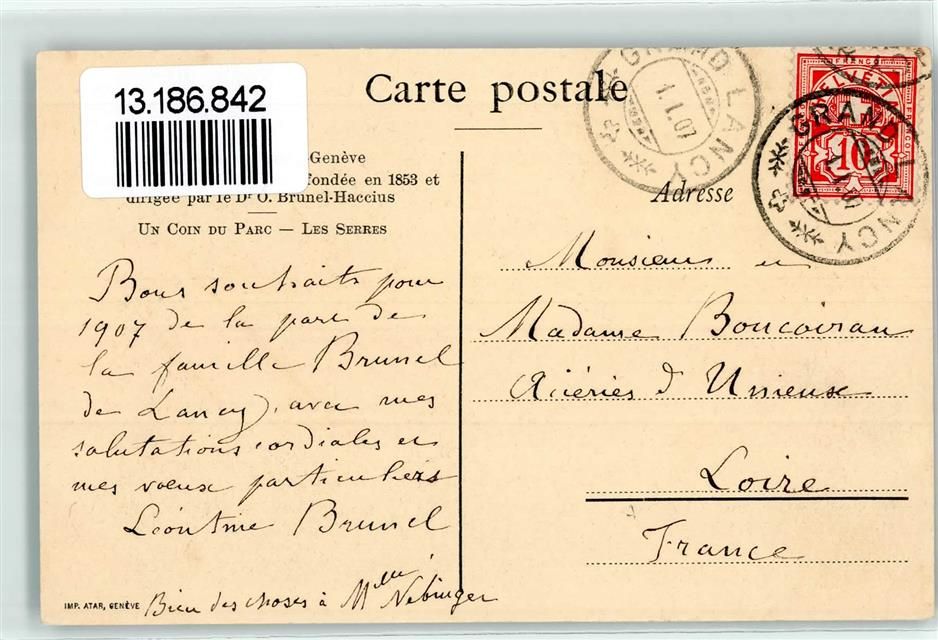 13.186.842
Carte postale
Genève
fondée en 1853 et
dirigée par le Dr O. Brunel-Haccius
UN COIN DU PARC — LES SERRES
Bons souhaits pour
1907 de la part de
la famille Brunel
de Lancy, avec mes
salutations cordiales et
mes vœux particuliers
Léontine Brunel
Bien des choses à Mlle Nebinger
IMP. ATAR, GENÈVE
GRAND LANCY
1.I.07
Adresse
10
GRAND LANCY
Monsieur et
Madame Boucoiran
Aciéries d'Unieux
Loire
France